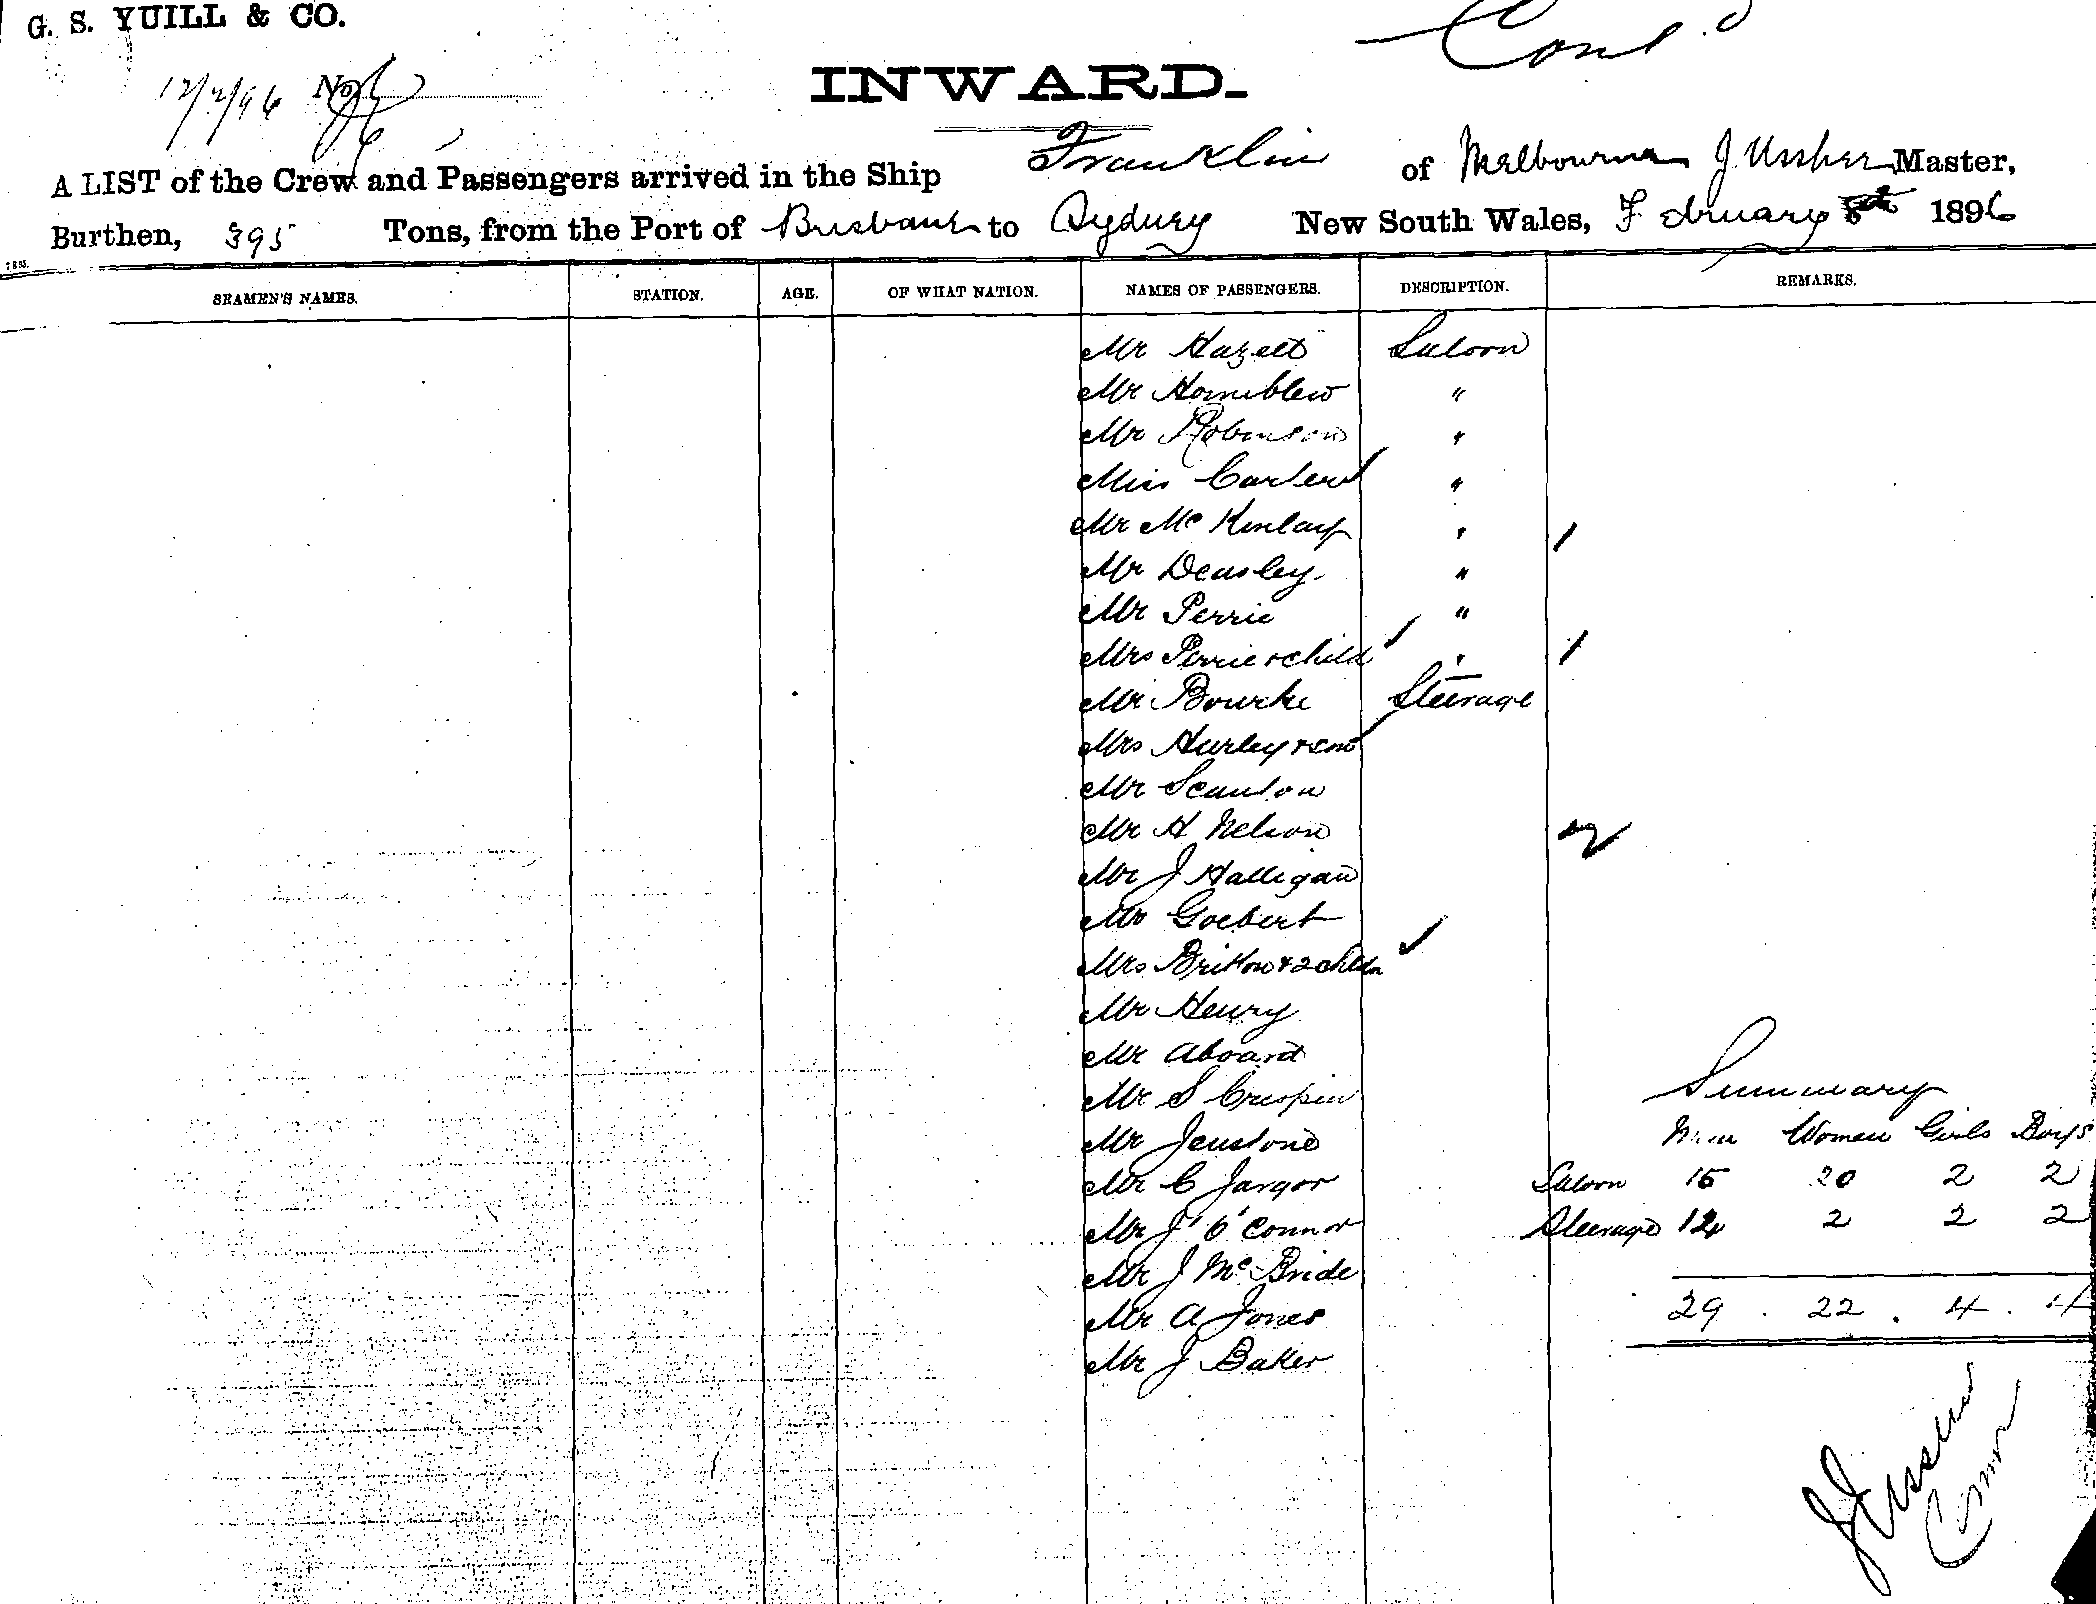 G. S. YUILL & CO.
Cont'd
12/2/96 No
INWARD.
A LIST of the Crew and Passengers arrived in the Ship Franklin of Melbourne J Ussher Master,
Burthen, 395 Tons, from the Port of Brisbane to Sydney New South Wales, February 1896
SEAMEN'S NAMES. STATION. AGE. OF WHAT NATION. NAMES OF PASSENGERS. DESCRIPTION. REMARKS.
Mr Hazelt Saloon
Mr Horniblew "
Mr Robinson "
Miss "
Mr McKinlay "
Mr Deasley "
Mr Perrie "
Mrs Perrie & child "
Mr Bourke Steerage
Mrs Hurley & son
Mr Scanlon
Mr H Nelson
Mr J Halligan
Mr Goebert
Mrs Britton & 2 childn
Mr Henry
Mr Aboard
Mr S Crispin
Mr Jenstone
Mr C Jargor
Mr J O'Connor
Mr J McBride
Mr A Jones
Mr J Baker
Summary
Men Women Girls Boys
Saloon 15 20 2 2
Steerage 14 2 2 2
29 . 22 . 4 . 4
J Ussher